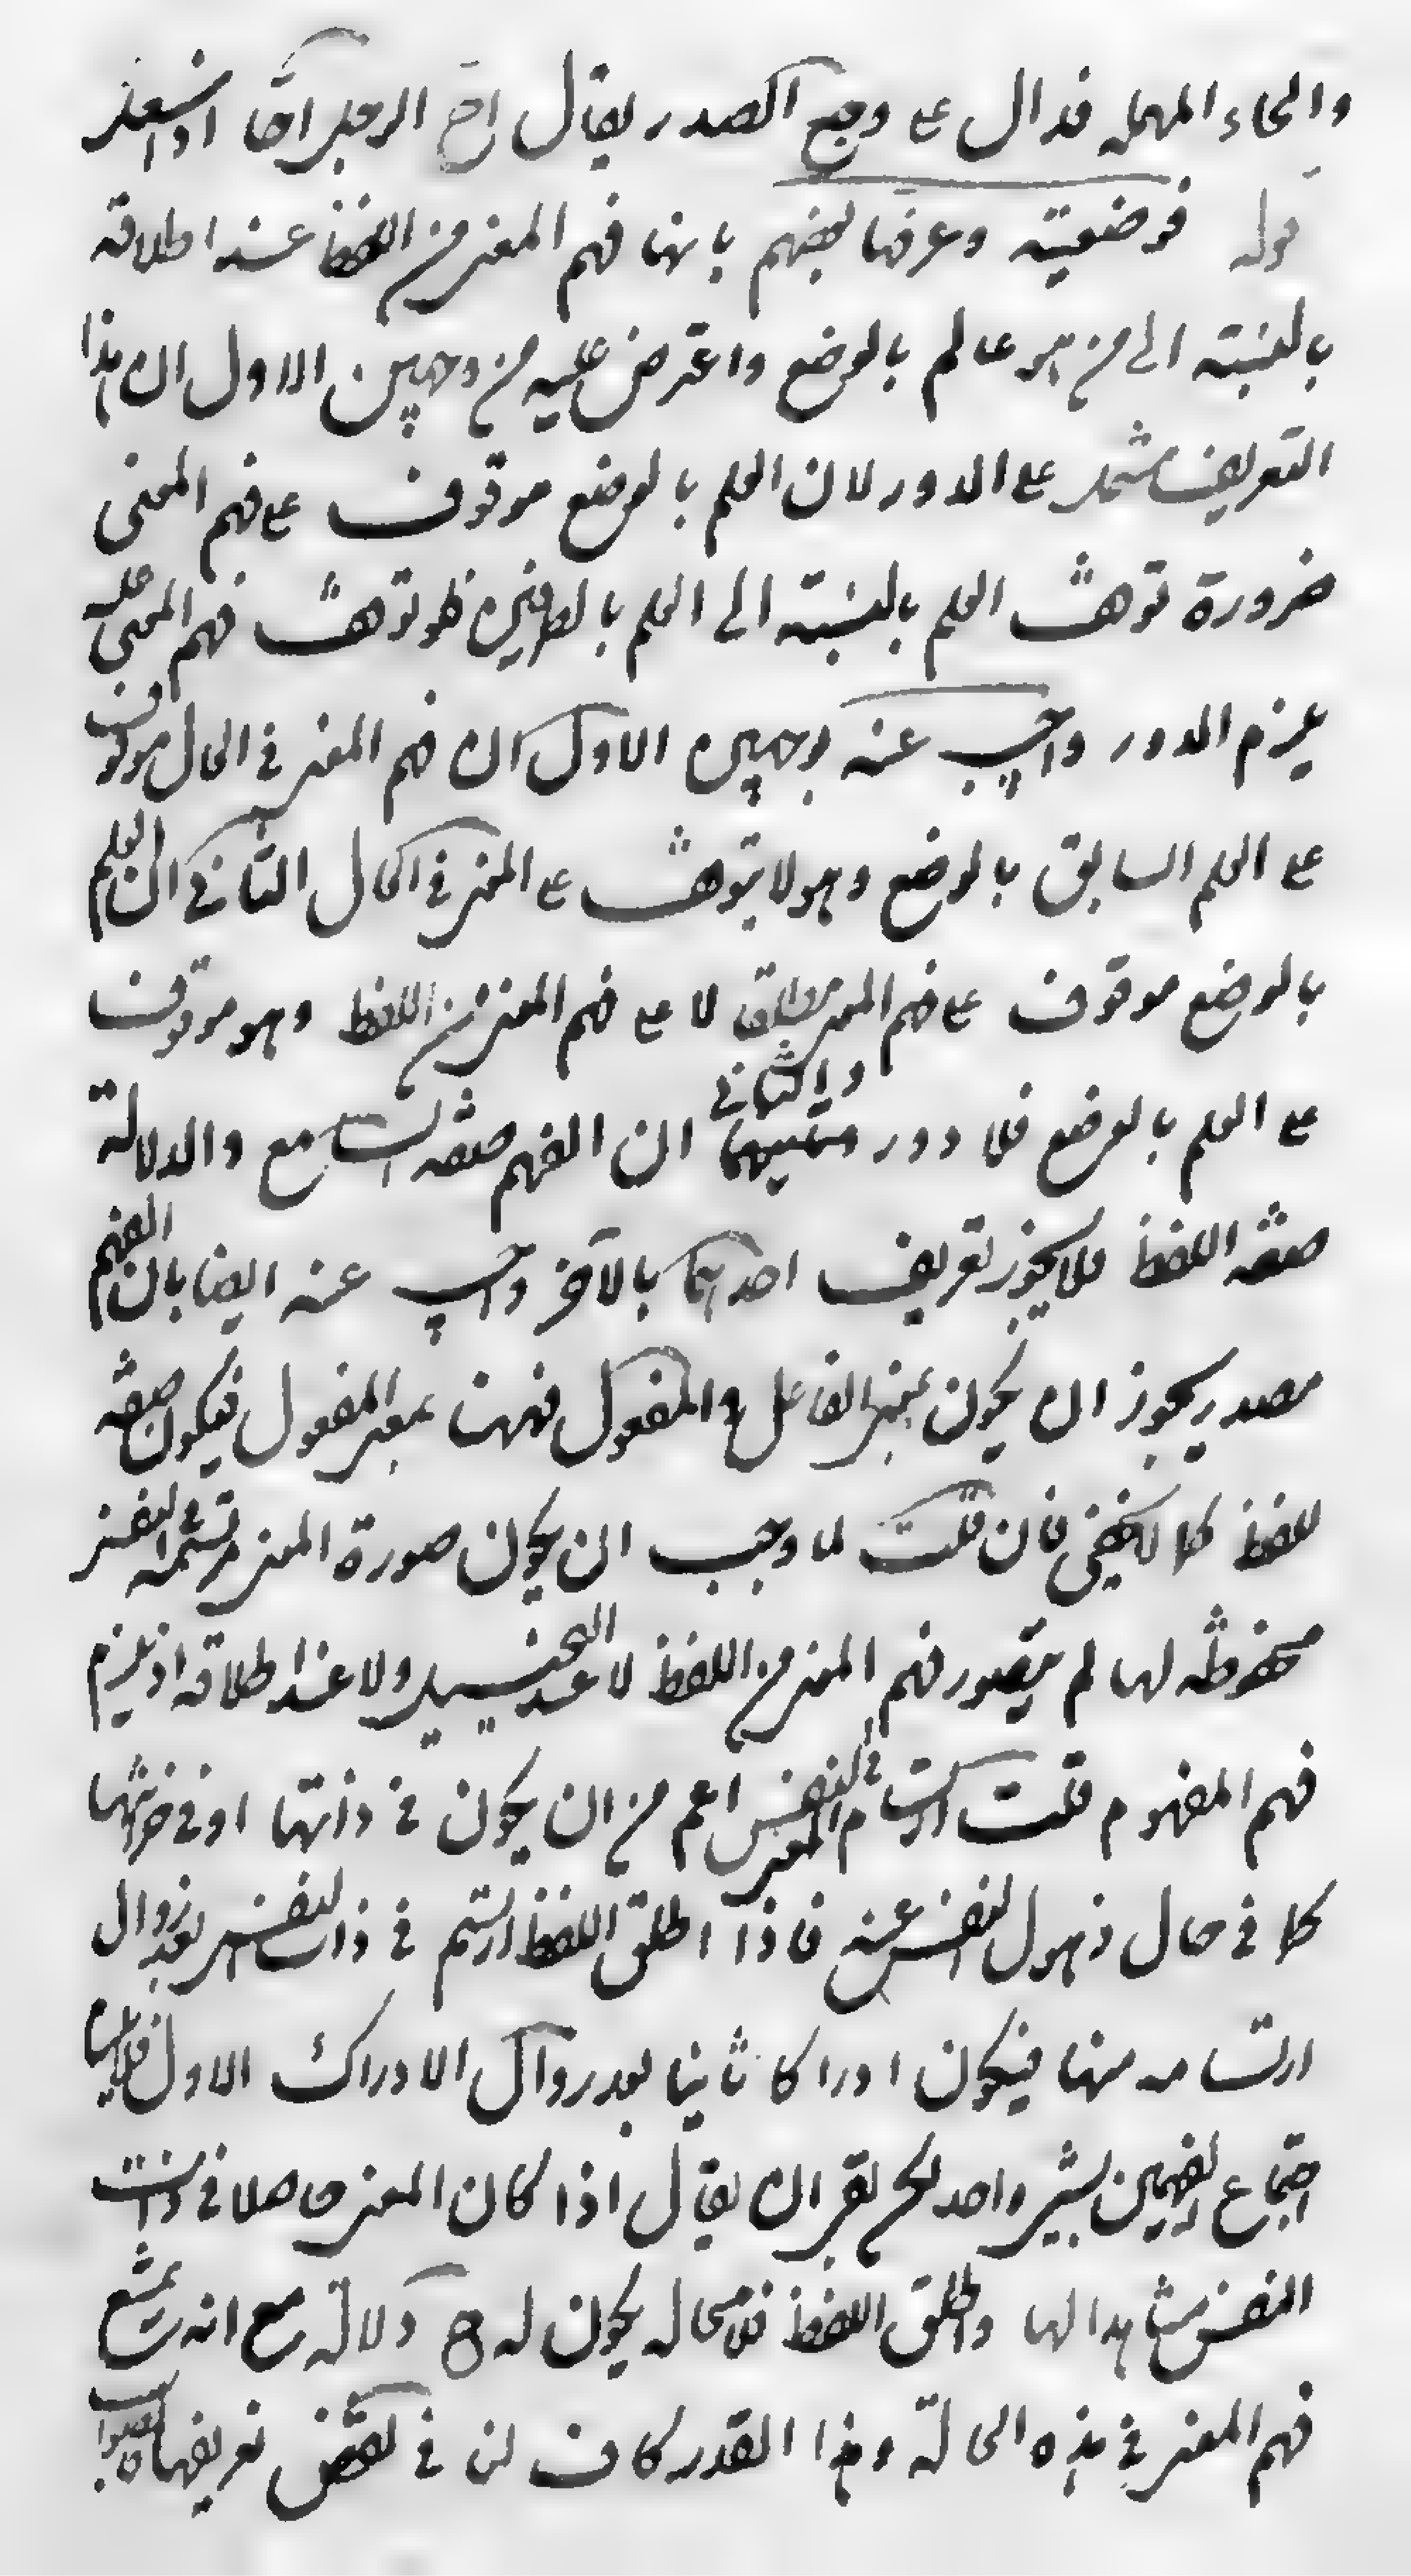 والحاء المهملة فدال على وجع الصدر يقال اح الرجل احا اذا سعل
قوله فوضعية وعرفها بعضهم بانها فهم المعنى من اللفظ عند اطلاقه
بالنسبة الى من هو عالم بالوضع واعترض عليه من وجهين الاول ان هذا
التعريف مشتمل على الدور لان العلم بالوضع موقوف على فهم المعنى
ضرورة توقف العلم بالنسبة الى العلم بالطرفين فلو توقف فهم المعنى عليه
يلزم الدور واجيب عنه بوجهين الاول ان فهم المعنى في الحال موقوف
على العلم السابق بالوضع وهو لا يتوقف على المعنى في الحال الثاني ان العلم
بالوضع موقوف على فهم المعنى مطلقا لا على فهم المعنى من اللفظ وهو موقوف
على العلم بالوضع فلا دور والثاني ان الفهم صفة السامع والدلالة
صفة اللفظ فلا يجوز تعريف احديهما بالآخر واجيب عنه ايضا بان الفهم
مصدر يجوز ان يكون بمعنى الفاعل والمفعول فههنا بمعنى المفعول فيكون صفة
للفظ كما لا يخفى فان قلت لما وجب ان يكون صورة المعنى مرتسمة في النفس
محفوظة لها لم يتصور فهم المعنى من اللفظ لا عند التخييل ولا عند اطلاقه اذ يلزم
فهم المفهوم قلت ارتسام المعنى في النفس اعم من ان يكون في ذاتها او في خزانتها
كما في حال ذهول النفس عنه فاذا اطلق اللفظ ارتسم في ذات النفس بعد زوال
ارتسامه منها فيكون ادراكا ثانيا بعد زوال الادراك الاول فلا يلزم
اجتماع الفهمين لشيء واحد لكن بقي ان يقال اذا كان المعنى حاصلا في ذات
النفس مشاهدا لها واطلق اللفظ فلا محالة يكون له ح دلالة مع انه يمتنع
فهم المعنى في هذه الحالة وهذا القدر كاف لنا في نقض تعريفها فالصواب